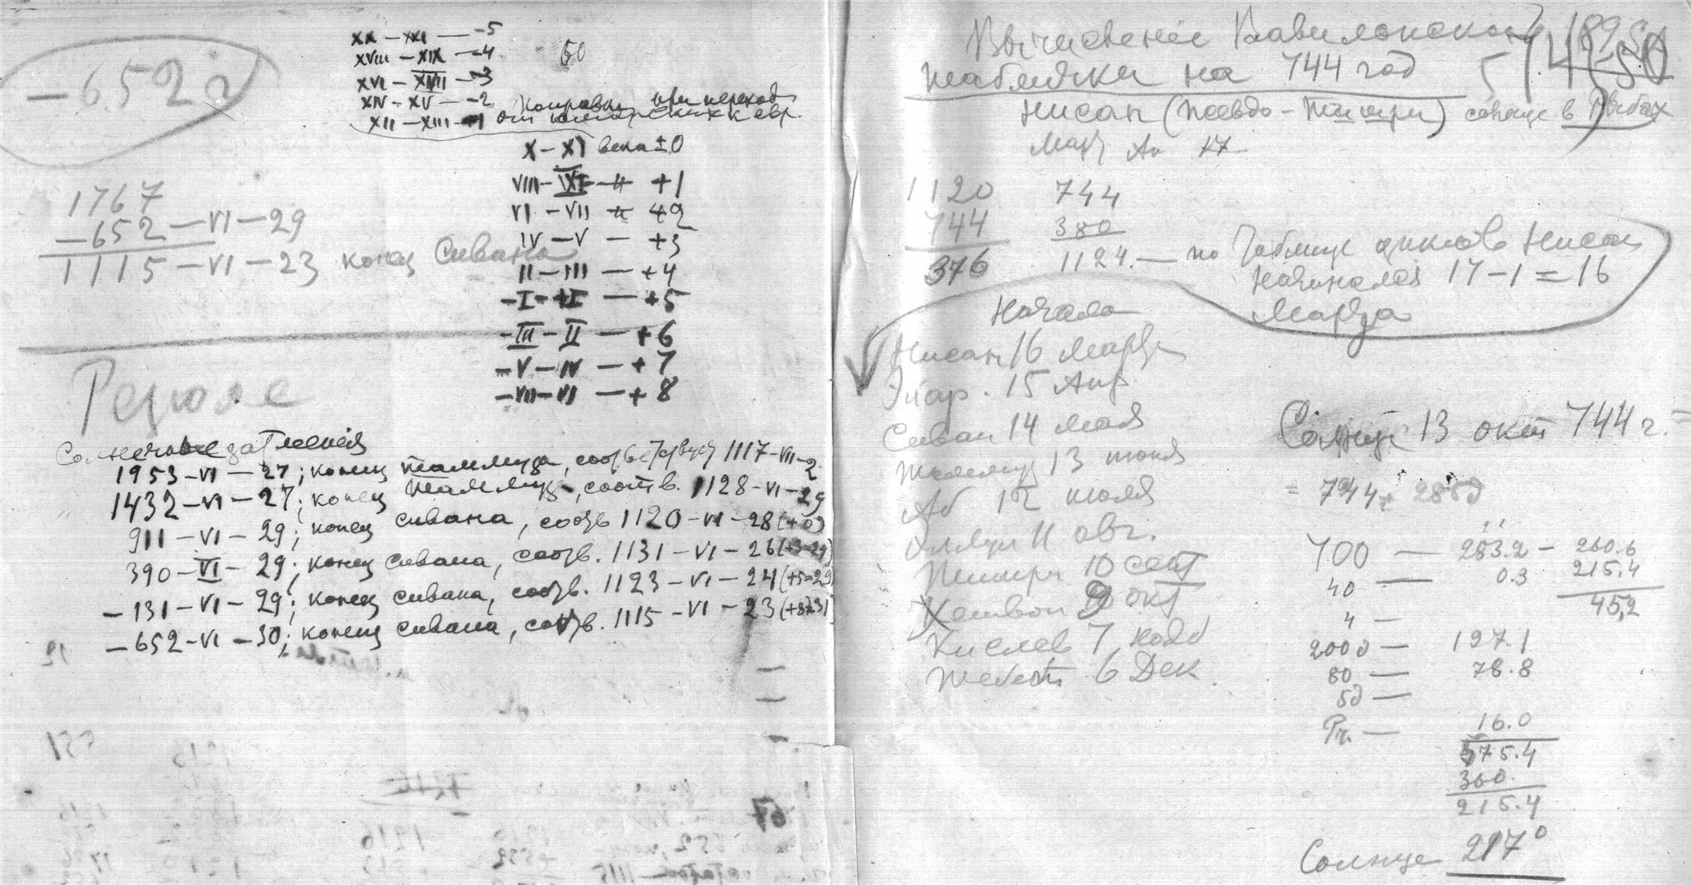 - 652 г
XX - XXI — -5
XVIII - XIX — -4
XVI - XVII — -3
XIV - XV — -2
XII - XIII — -1
50
Поправки при переходе
от юлианских к евр.
X - XI века ± 0
VIII - IX - " +1
VI - VII " +2
IV - V — +3
II - III — +4
- I - + I — +5
- III - II — +6
- V - IV — +7
- VII - VI — +8
1767
- 652 - VI - 29
1115 - VI - 23 конец Сивана
Резюме
Солнечные затмения
1953 - VI - 27; конец таммуза, соотв. 1117 - VII - 2
1432 - VI - 27; конец таммуза, соотв. 1128 - VI - 29
911 - VI - 29; конец сивана, соотв. 1120 - VI - 28 (+0)
390 - VI - 29; конец сивана, соотв. 1131 - VI - 26
- 131 - VI - 29; конец сивана, соотв. 1123 - VI - 24 (+5=29)
- 652 - VI - 30; конец сивана, соотв. 1115 - VI - 23 (+8=31)
67
Вычисление Вавилонской
таблички на 744 год
Нисан (псевдо - Тишри) солнце в Рыбах
Март Ап 17
1120
744
376
744
380
1124. — по Таблице циклов Нисан
начинался 17 - 1 = 16
Марта
Начала
Нисан 16 Марта
Йяр. 15 Апр
Сиван 14 мая
Таммуз 13 июня
Аб 12 июля
Эллул 11 авг.
Тишри 10 сент
Хешван 9 окт
Кислев 7 нояб
Тебет 6 Дек.
Солнце 13 окт 744 г. =
= 744 + 285д
700 — 283.2 - 260.6
40 — 0.3 215.4
45,2
4 —
2000 — 197.1
80 — 78.8
5д —
Рч. — 16.0
575.4
360.
215.4
Солнце 217°